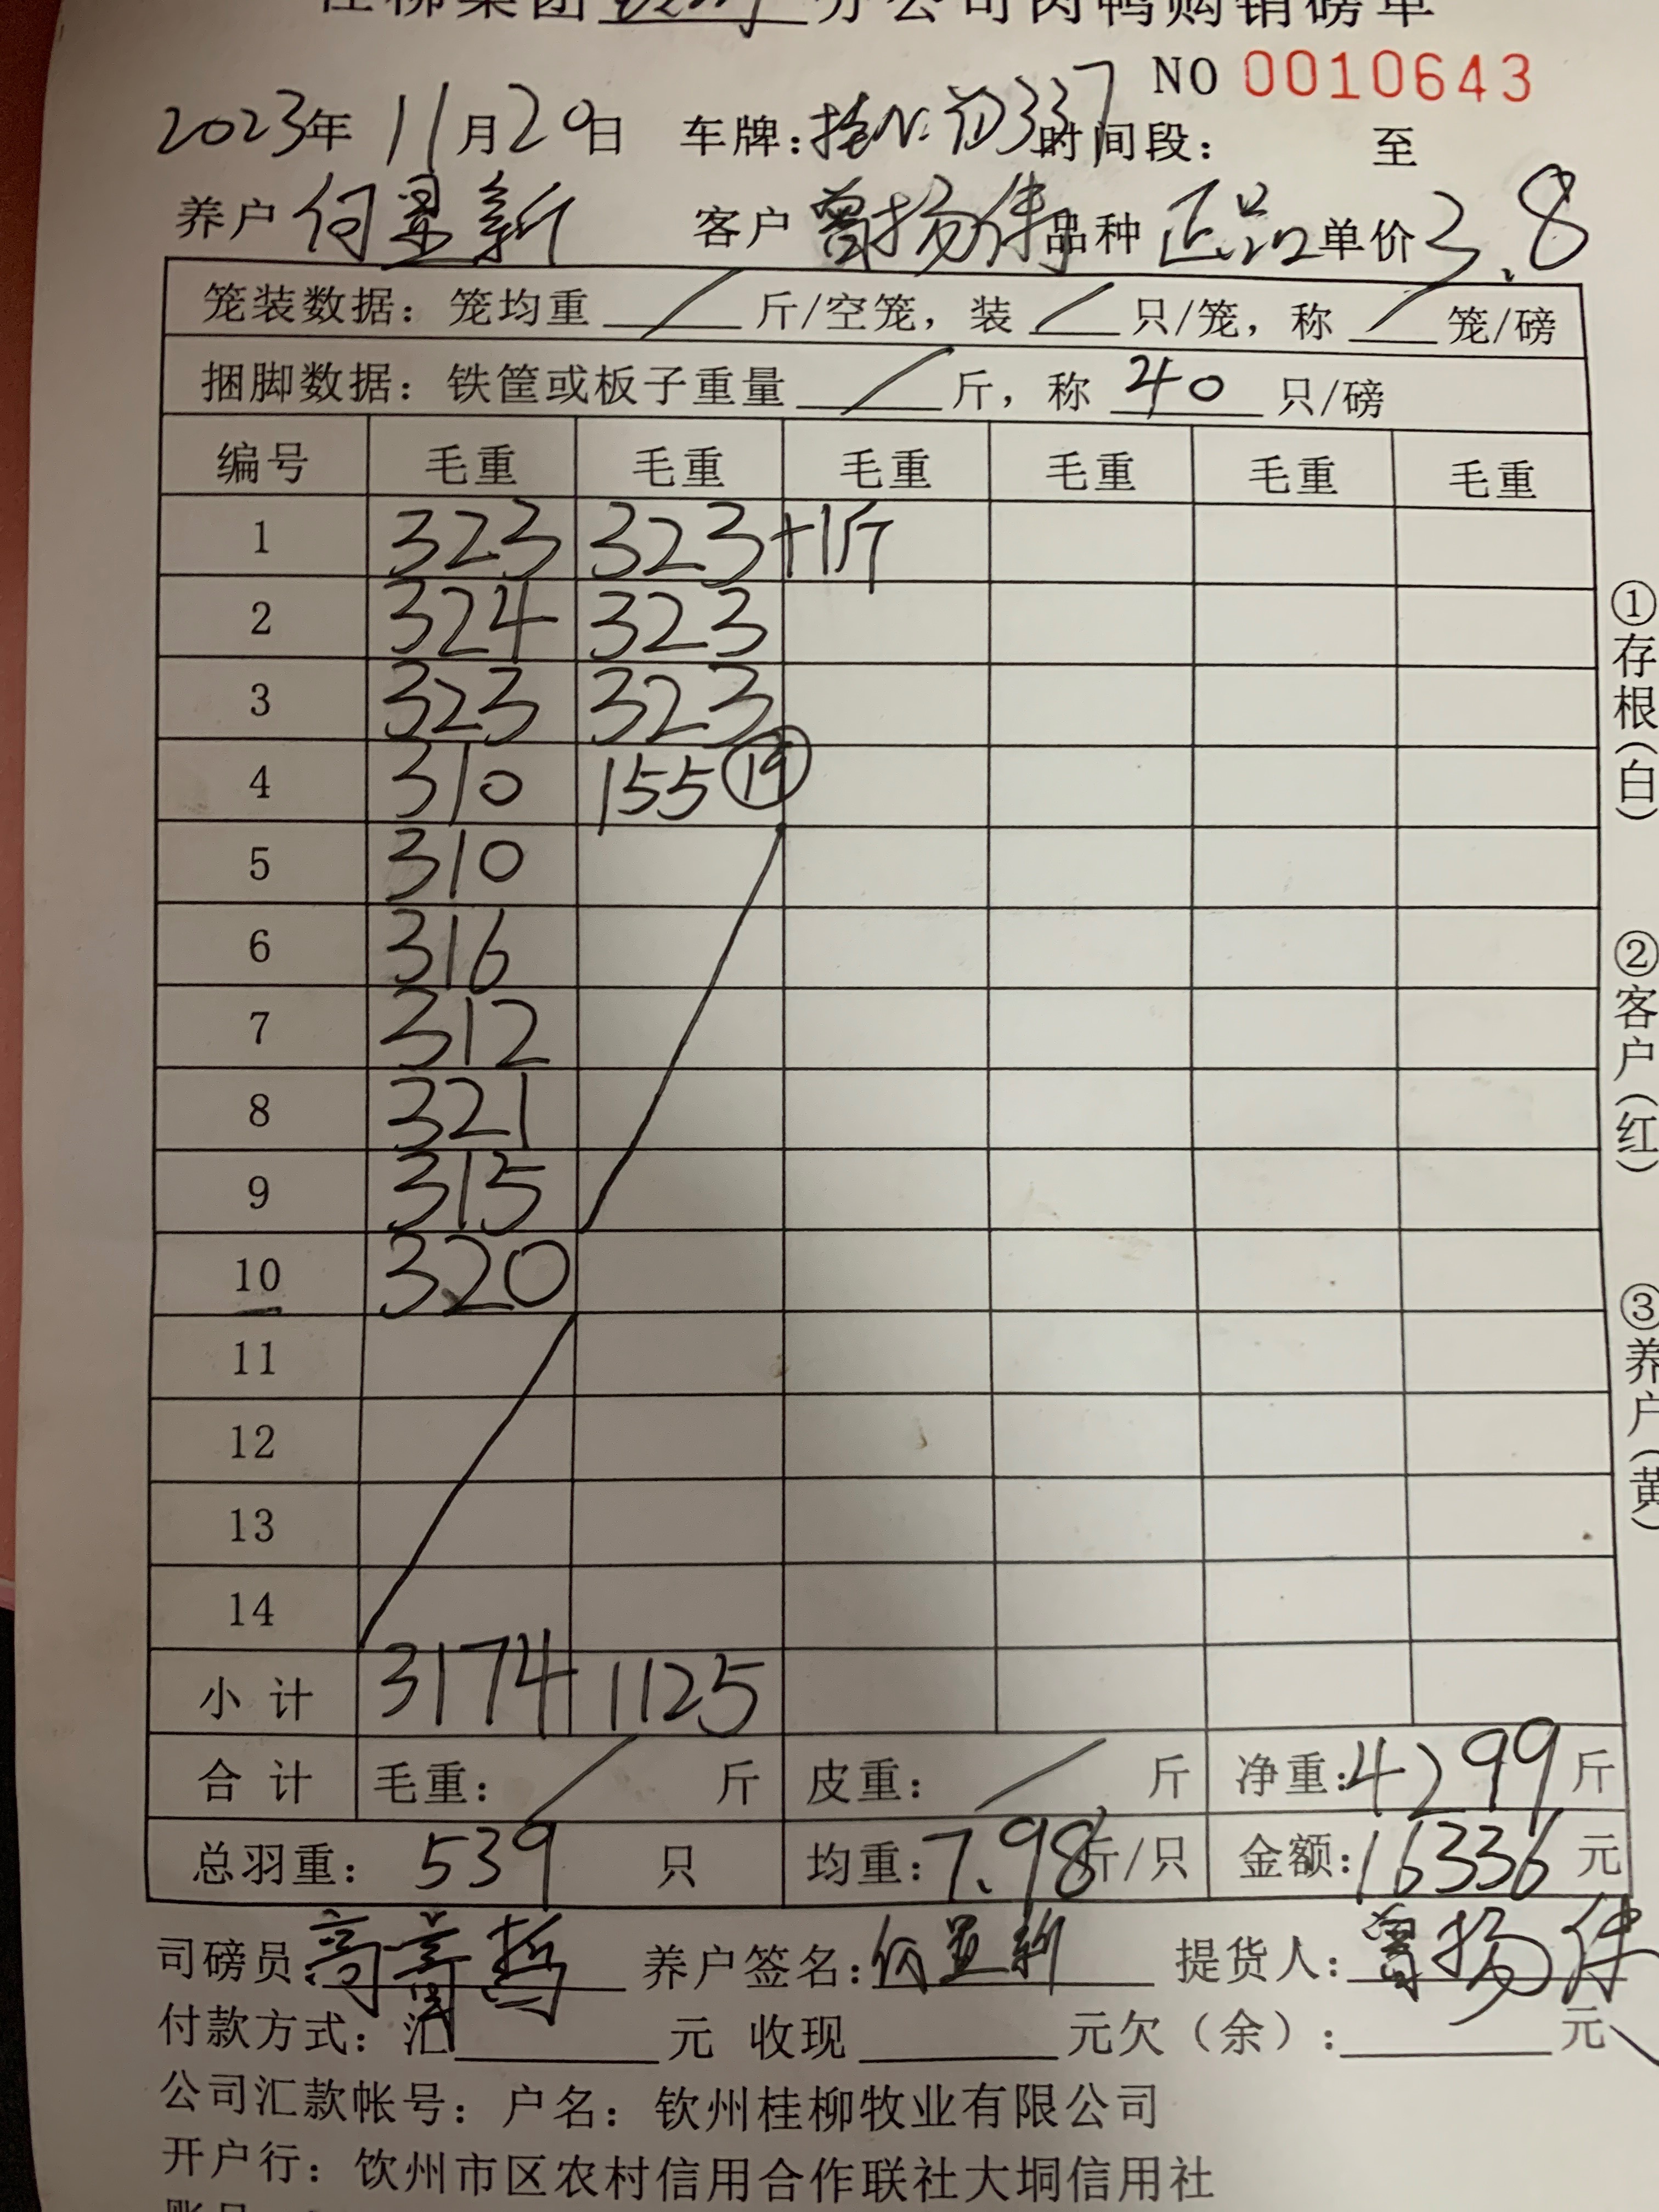 桂柳集团 分公司肉鸭购销磅单
NO 0010643
2023年 11月20日 车牌: 337 时间段: 至
养户 何景新 客户 曾扬伟 品种 正品 单价 3.8
笼装数据: 笼均重 / 斤/空笼, 装 / 只/笼, 称 / 笼/磅
捆脚数据: 铁筐或板子重量 / 斤, 称 40 只/磅
编号 毛重 毛重 毛重 毛重 毛重 毛重
1 323 323 +1斤
2 324 323
3 323 323
4 310 155 ⑲
5 310
6 316
7 312
8 321
9 315
10 320
11
12
13
14
小计 3174 1125
合计 毛重: / 斤 皮重: / 斤 净重: 4299 斤
总羽重: 539 只 均重: 7.98 斤/只 金额: 16336 元
司磅员: 养户签名: 何景新 提货人: 曾扬伟
付款方式: 汇 元 收现 元欠(余): 元
公司汇款帐号: 户名: 钦州桂柳牧业有限公司
开户行: 钦州市区农村信用合作联社大垌信用社
①存根(白)
②客户(红)
③养户(黄)